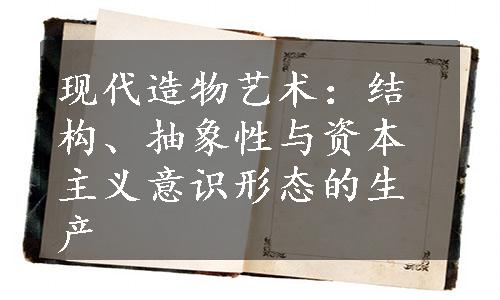 现代造物艺术：结
构、抽象性与资本
主义意识形态的生
产